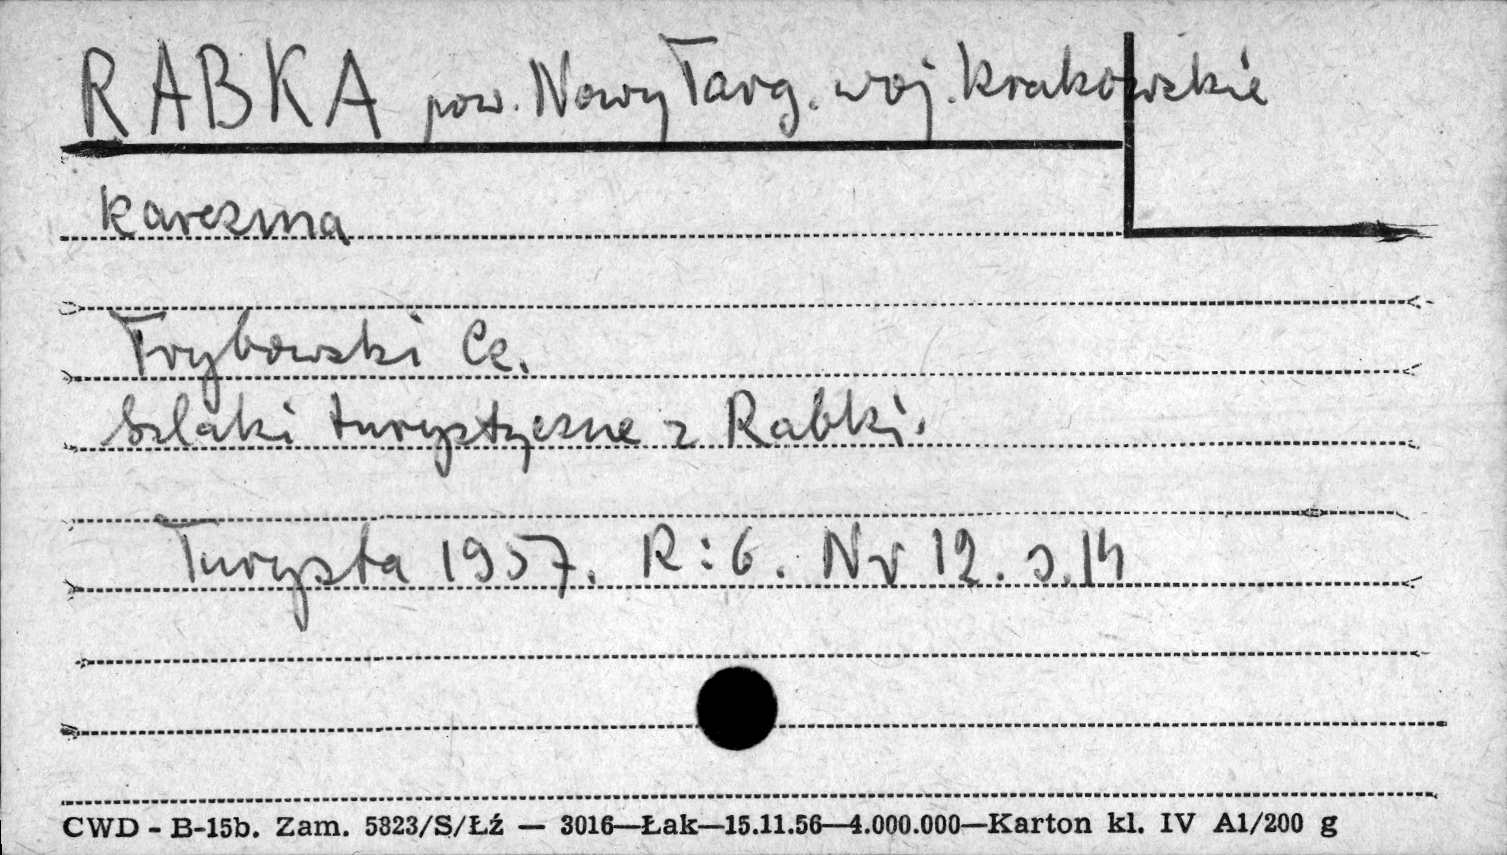 RABKA pow. Nowy Targ. woj. krakowskie
karczma
Trybowski Cz.
Szlaki turystyczne z Rabki.
Turysta 1957. R: 6. Nr 12. s. 14
CWD - B-15b. Zam. 5823/S/Łź — 3016—Łak—15.11.56—4.000.000—Karton kl. IV A1/200 g